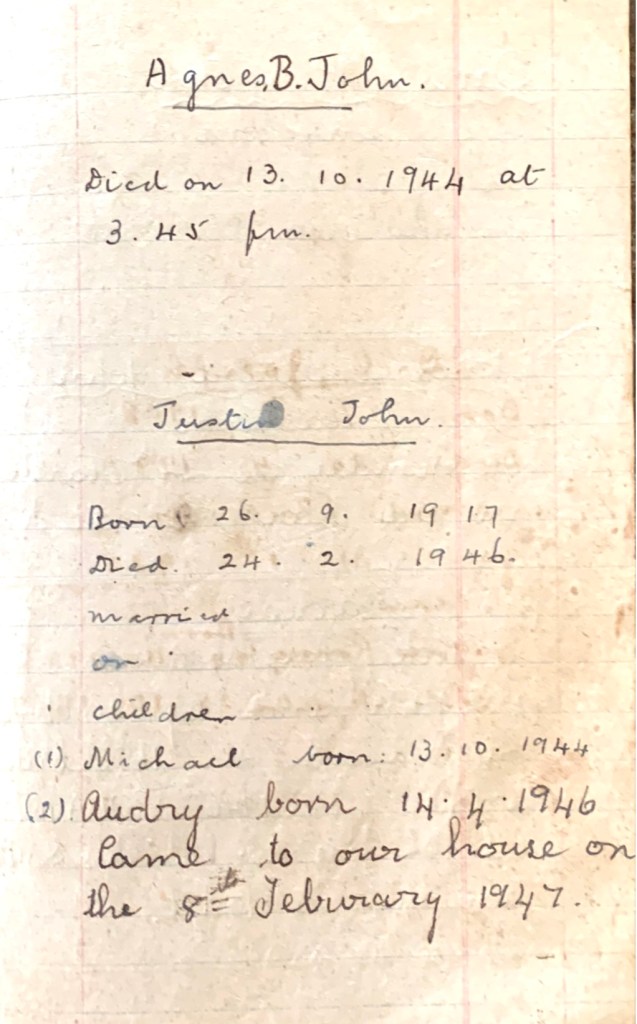 Agnes B. John.
Died on 13. 10. 1944 at
3. 45 pm.
John.
Born 26. 9. 1917
Died. 24. 2. 1946.
married
on
children
(1) Michael born: 13. 10. 1944
(2). Audry born 14. 4. 1946
Came to our house on
the 8th Feburary 1947.